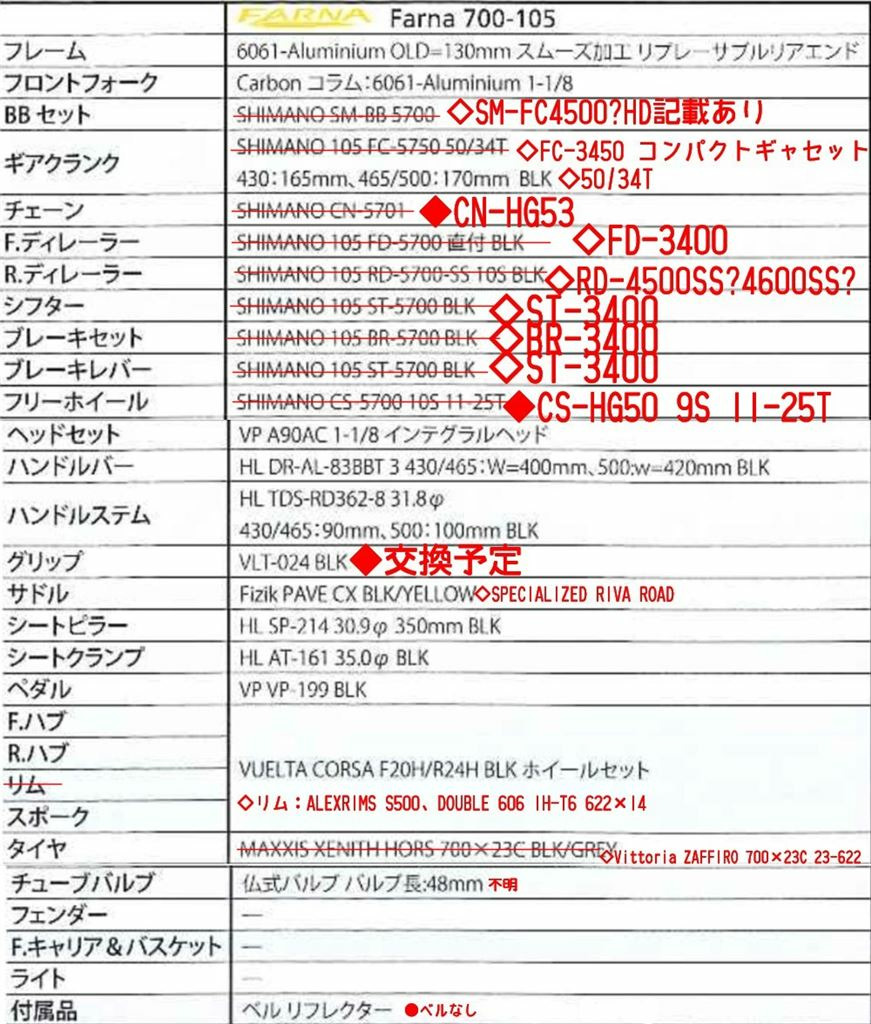 FARNA Farna 700-105
フレーム 6061-Aluminium OLD=130mm スムーズ加工 リプレーサブルリアエンド
フロントフォーク Carbon コラム:6061-Aluminium 1-1/8
BB セット SHIMANO SM-BB 5700 ◇SM-FC4500?HD記載あり
ギアクランク SHIMANO 105 FC-5750 50/34T ◇FC-3450 コンパクトギャセット
430:165mm、465/500:170mm BLK ◇50/34T
チェーン SHIMANO CN-5701 ◆CN-HG53
F.ディレーラー SHIMANO 105 FD-5700 直付 BLK ◇FD-3400
R.ディレーラー SHIMANO 105 RD-5700-SS 10S BLK ◇RD-4500SS?4600SS?
シフター SHIMANO 105 ST-5700 BLK ◇ST-3400
ブレーキセット SHIMANO 105 BR-5700 BLK ◇BR-3400
ブレーキレバー SHIMANO 105 ST-5700 BLK ◇ST-3400
フリーホイール SHIMANO CS-5700 10S 11-25T ◆CS-HG50 9S 11-25T
ヘッドセット VP A90AC 1-1/8 インテグラルヘッド
ハンドルバー HL DR-AL-83BBT 3 430/465:W=400mm、500:w=420mm BLK
ハンドルステム HL TDS-RD362-8 31.8φ
430/465:90mm、500:100mm BLK
グリップ VLT-024 BLK ◆交換予定
サドル Fizik PAVE CX BLK/YELLOW ◇SPECIALIZED RIVA ROAD
シートピラー HL SP-214 30.9φ 350mm BLK
シートクランプ HL AT-161 35.0φ BLK
ペダル VP VP-199 BLK
F.ハブ
R.ハブ
VUELTA CORSA F20H/R24H BLK ホイールセット
リム
◇リム:ALEXRIMS S500、DOUBLE 606 1H-T6 622×14
スポーク
タイヤ MAXXIS XENITH HORS 700×23C BLK/GREY ◇Vittoria ZAFFIRO 700×23C 23-622
チューブバルブ 仏式バルブ バルブ長:48mm 不明
フェンダー —
F.キャリア&バスケット —
ライト —
付属品 ベル リフレクター ●ベルなし